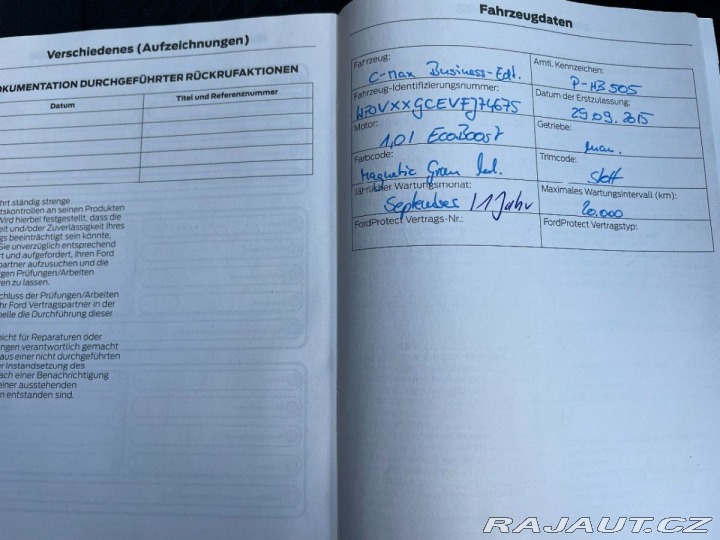 Verschiedenes (Aufzeichnungen)
OKUMENTATION DURCHGEFÜHRTER RÜCKRUFAKTIONEN
Datum
Titel und Referenznummer
hrt ständig strenge
tskontrollen an seinen Produkten
Wird hierbei festgestellt, dass die
eit und/oder Zuverlässigkeit Ihres
gs beeinträchtigt sein könnte,
Sie unverzüglich entsprechend
rt und aufgefordert, Ihren Ford
partner aufzusuchen und die
gen Prüfungen/Arbeiten
en zu lassen.
chluss der Prüfungen/Arbeiten
hr Ford Vertragspartner in der
belle die Durchführung dieser
nicht für Reparaturen oder
ngen verantwortlich gemacht
aus einer nicht durchgeführten
er Instandsetzung des
ach einer Benachrichtigung
einer ausstehenden
n entstanden sind.
Fahrzeugdaten
Fahrzeug:
C-Max Business-Edt.
Amtl. Kennzeichen:
P-HB 505
Fahrzeug-Identifizierungsnummer:
WF0VXXGCEVFJ74675
Datum der Erstzulassung:
29.09.2015
Motor:
1,0l EcoBoost
Getriebe:
man.
Farbcode:
Magnetic Grau
Trimcode:
Stoff
Jährlicher Wartungsmonat:
September / 1 Jahr
Maximales Wartungsintervall (km):
20.000
FordProtect Vertrags-Nr.:
FordProtect Vertragstyp:
RAJAUT.CZ